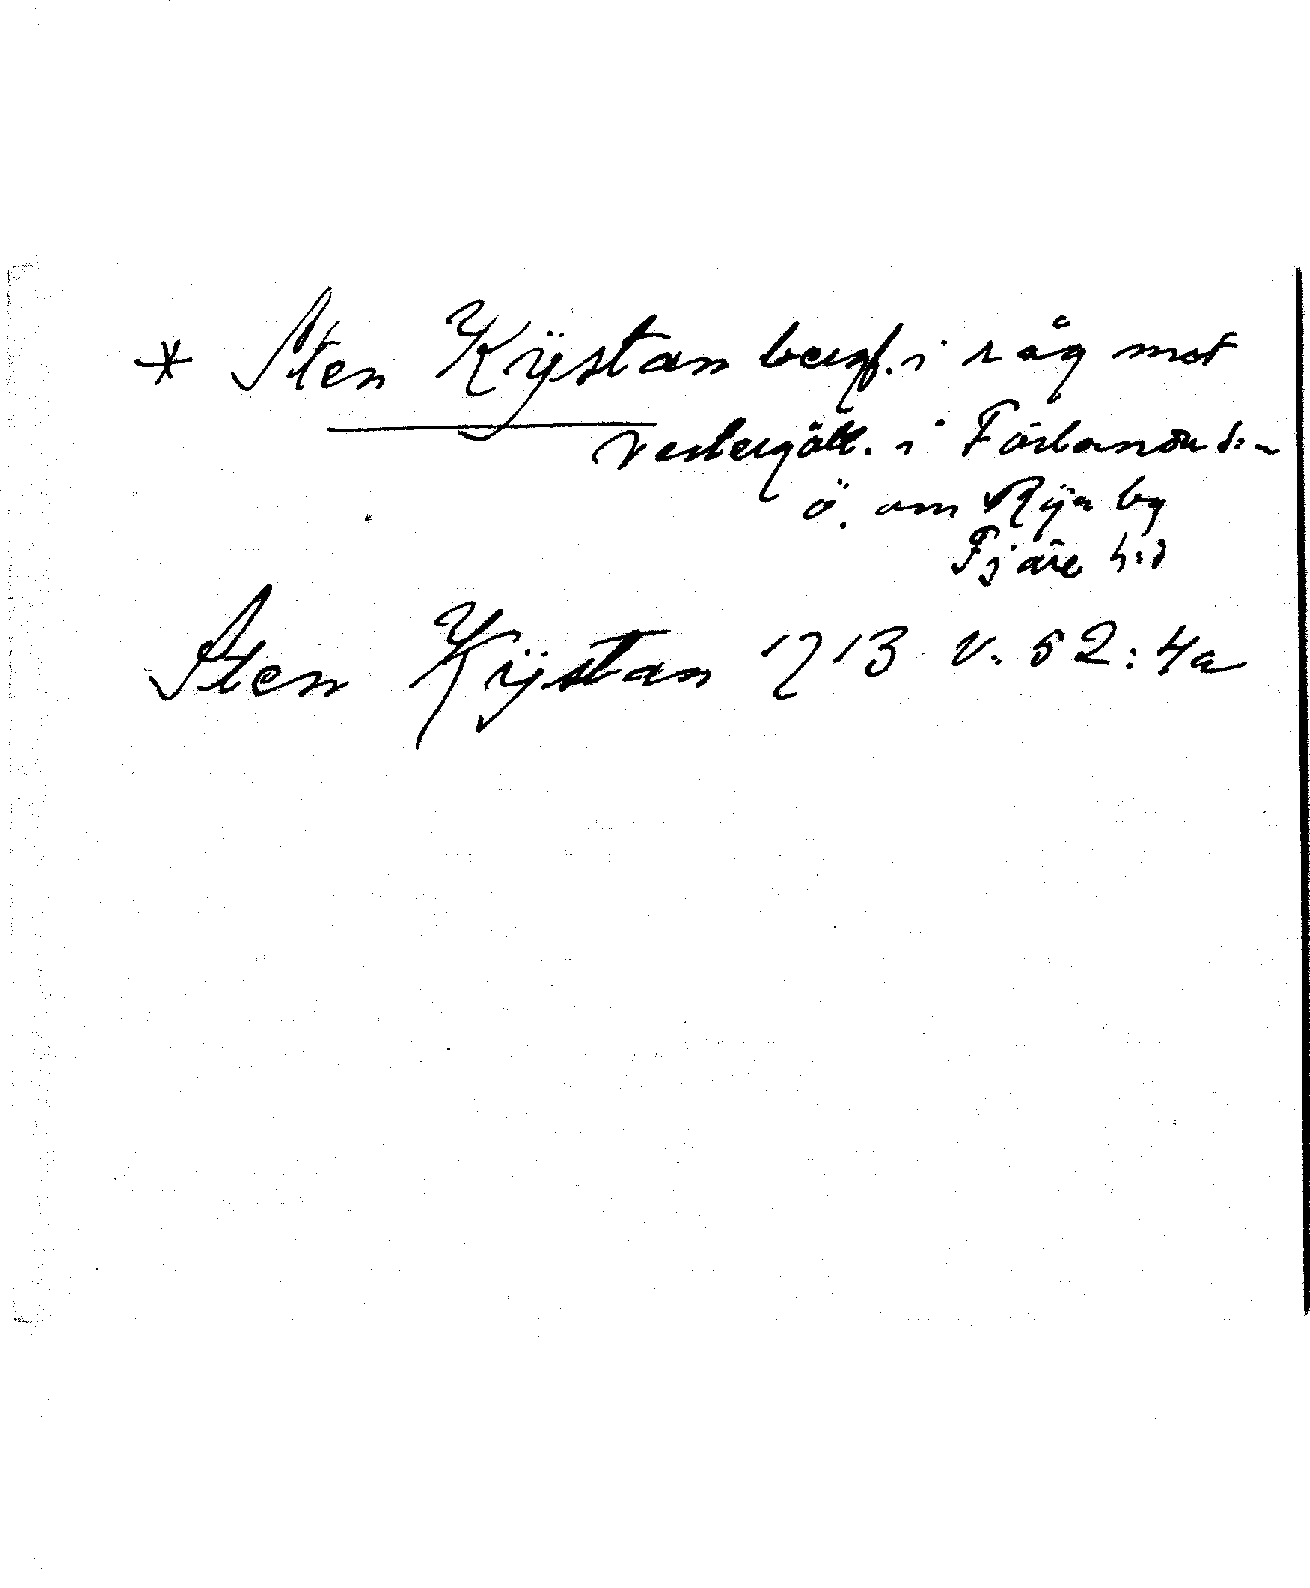 * Sten Kÿstan bergf. i råg mot
Vestergötl. i Förlanda s:n
ö. om Rÿa by
Fjäre h:d
Sten Kÿstan 1713 v. 52:4a